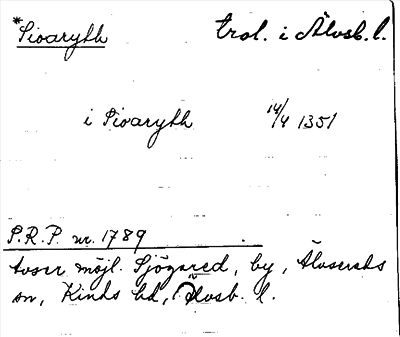 *Sivaryth trol. i Älvsb. l.
i Sivaryth 14/4 1351
S.R.P. nr. 1789
avser möjl. Sjögared, by, Älvsereds
sn, Kinds hd, Älvsb. l.